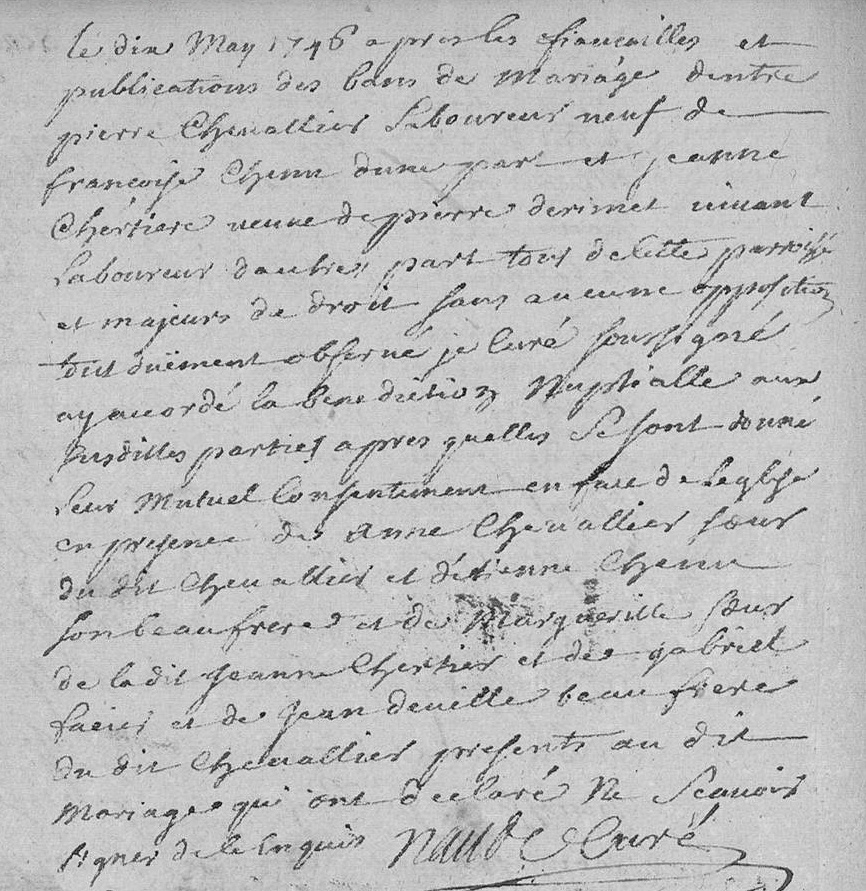 le dix May 1746 apres les fiancailles et
publications des bans de Mariage dentre
pierre Chevallier Laboureur neuf de
francoise Chenu dune part et jeanne
Chertiere veuve de pierre derimet vivant
Laboureur dautre part tous de cette parroisse
et majeurs de droit sans aucune opposition
tout duëment observé je Curé soussigné
ay accordé la benediction Nuptialle aux
susdittes parties apres quelles se sont donné
Leur Mutuel Consentement en face de Leglise
en presence de anne Chevallier sœur
du dit Chevallier et d'étienne Chenu
son beaufrere et de Margueritte sœur
de la dit Jeanne Chertier et de gabriel
et de Jean deville beau frere
du dit Chevallier presents au dit
Mariage qui ont declaré Ne Scavoir
signer de ce Enquis Curé